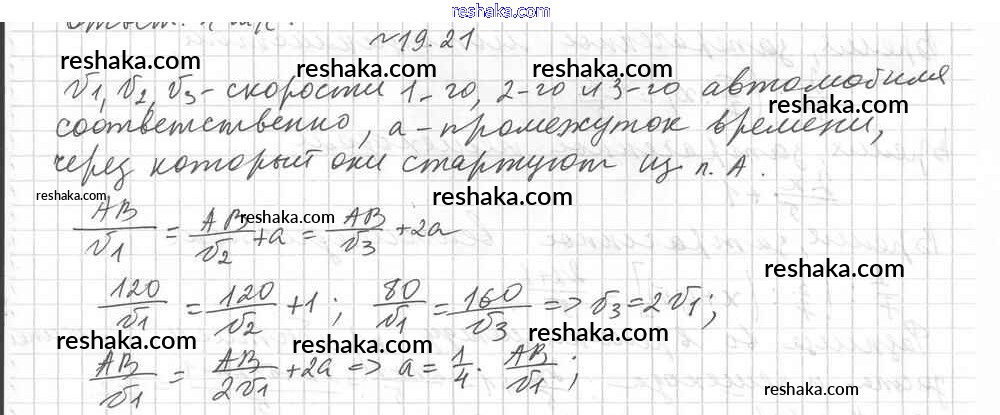 reshaka.com
№19.21
reshaka.com reshaka.com reshaka.com
v1, v2, v3 - скорости 1-го, 2-го и 3-го автомобиля
reshaka.com
соответственно, а - промежуток времени,
через который они стартуют из п. А.
reshaka.com reshaka.com
AB/v1 = AB/v2 + a = AB/v3 + 2a
reshaka.com
reshaka.com
120/v1 = 120/v2 + 1; 80/v1 = 160/v3 => v3 = 2v1;
reshaka.com reshaka.com reshaka.com
AB/v1 = AB/2v1 + 2a => a = 1/4 · AB/v1;
reshaka.com